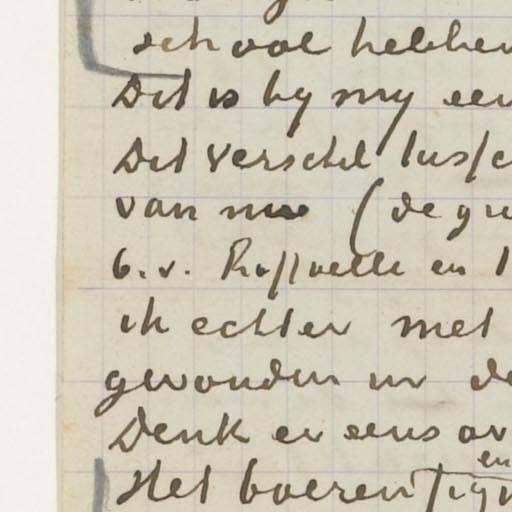 school hebben
Dit is by my een
Dit verschil tussc
van nu (de gr
b.v. Raffaelli en l
ik echter met
gevonden in de
Denk er eens ov
en
Het boerenfigu